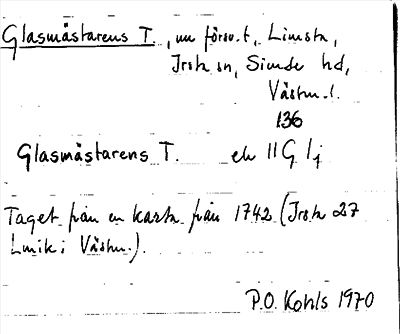 Glasmästarens T., nu försv. t., Limsta,
Irsta sn, Siende hd,
Västm. l.
136
Glasmästarens T. ek 11G 1j
Taget från en karta från 1742 (Irsta 27
Lmik i Västm.).
P.O. Kohls 1970